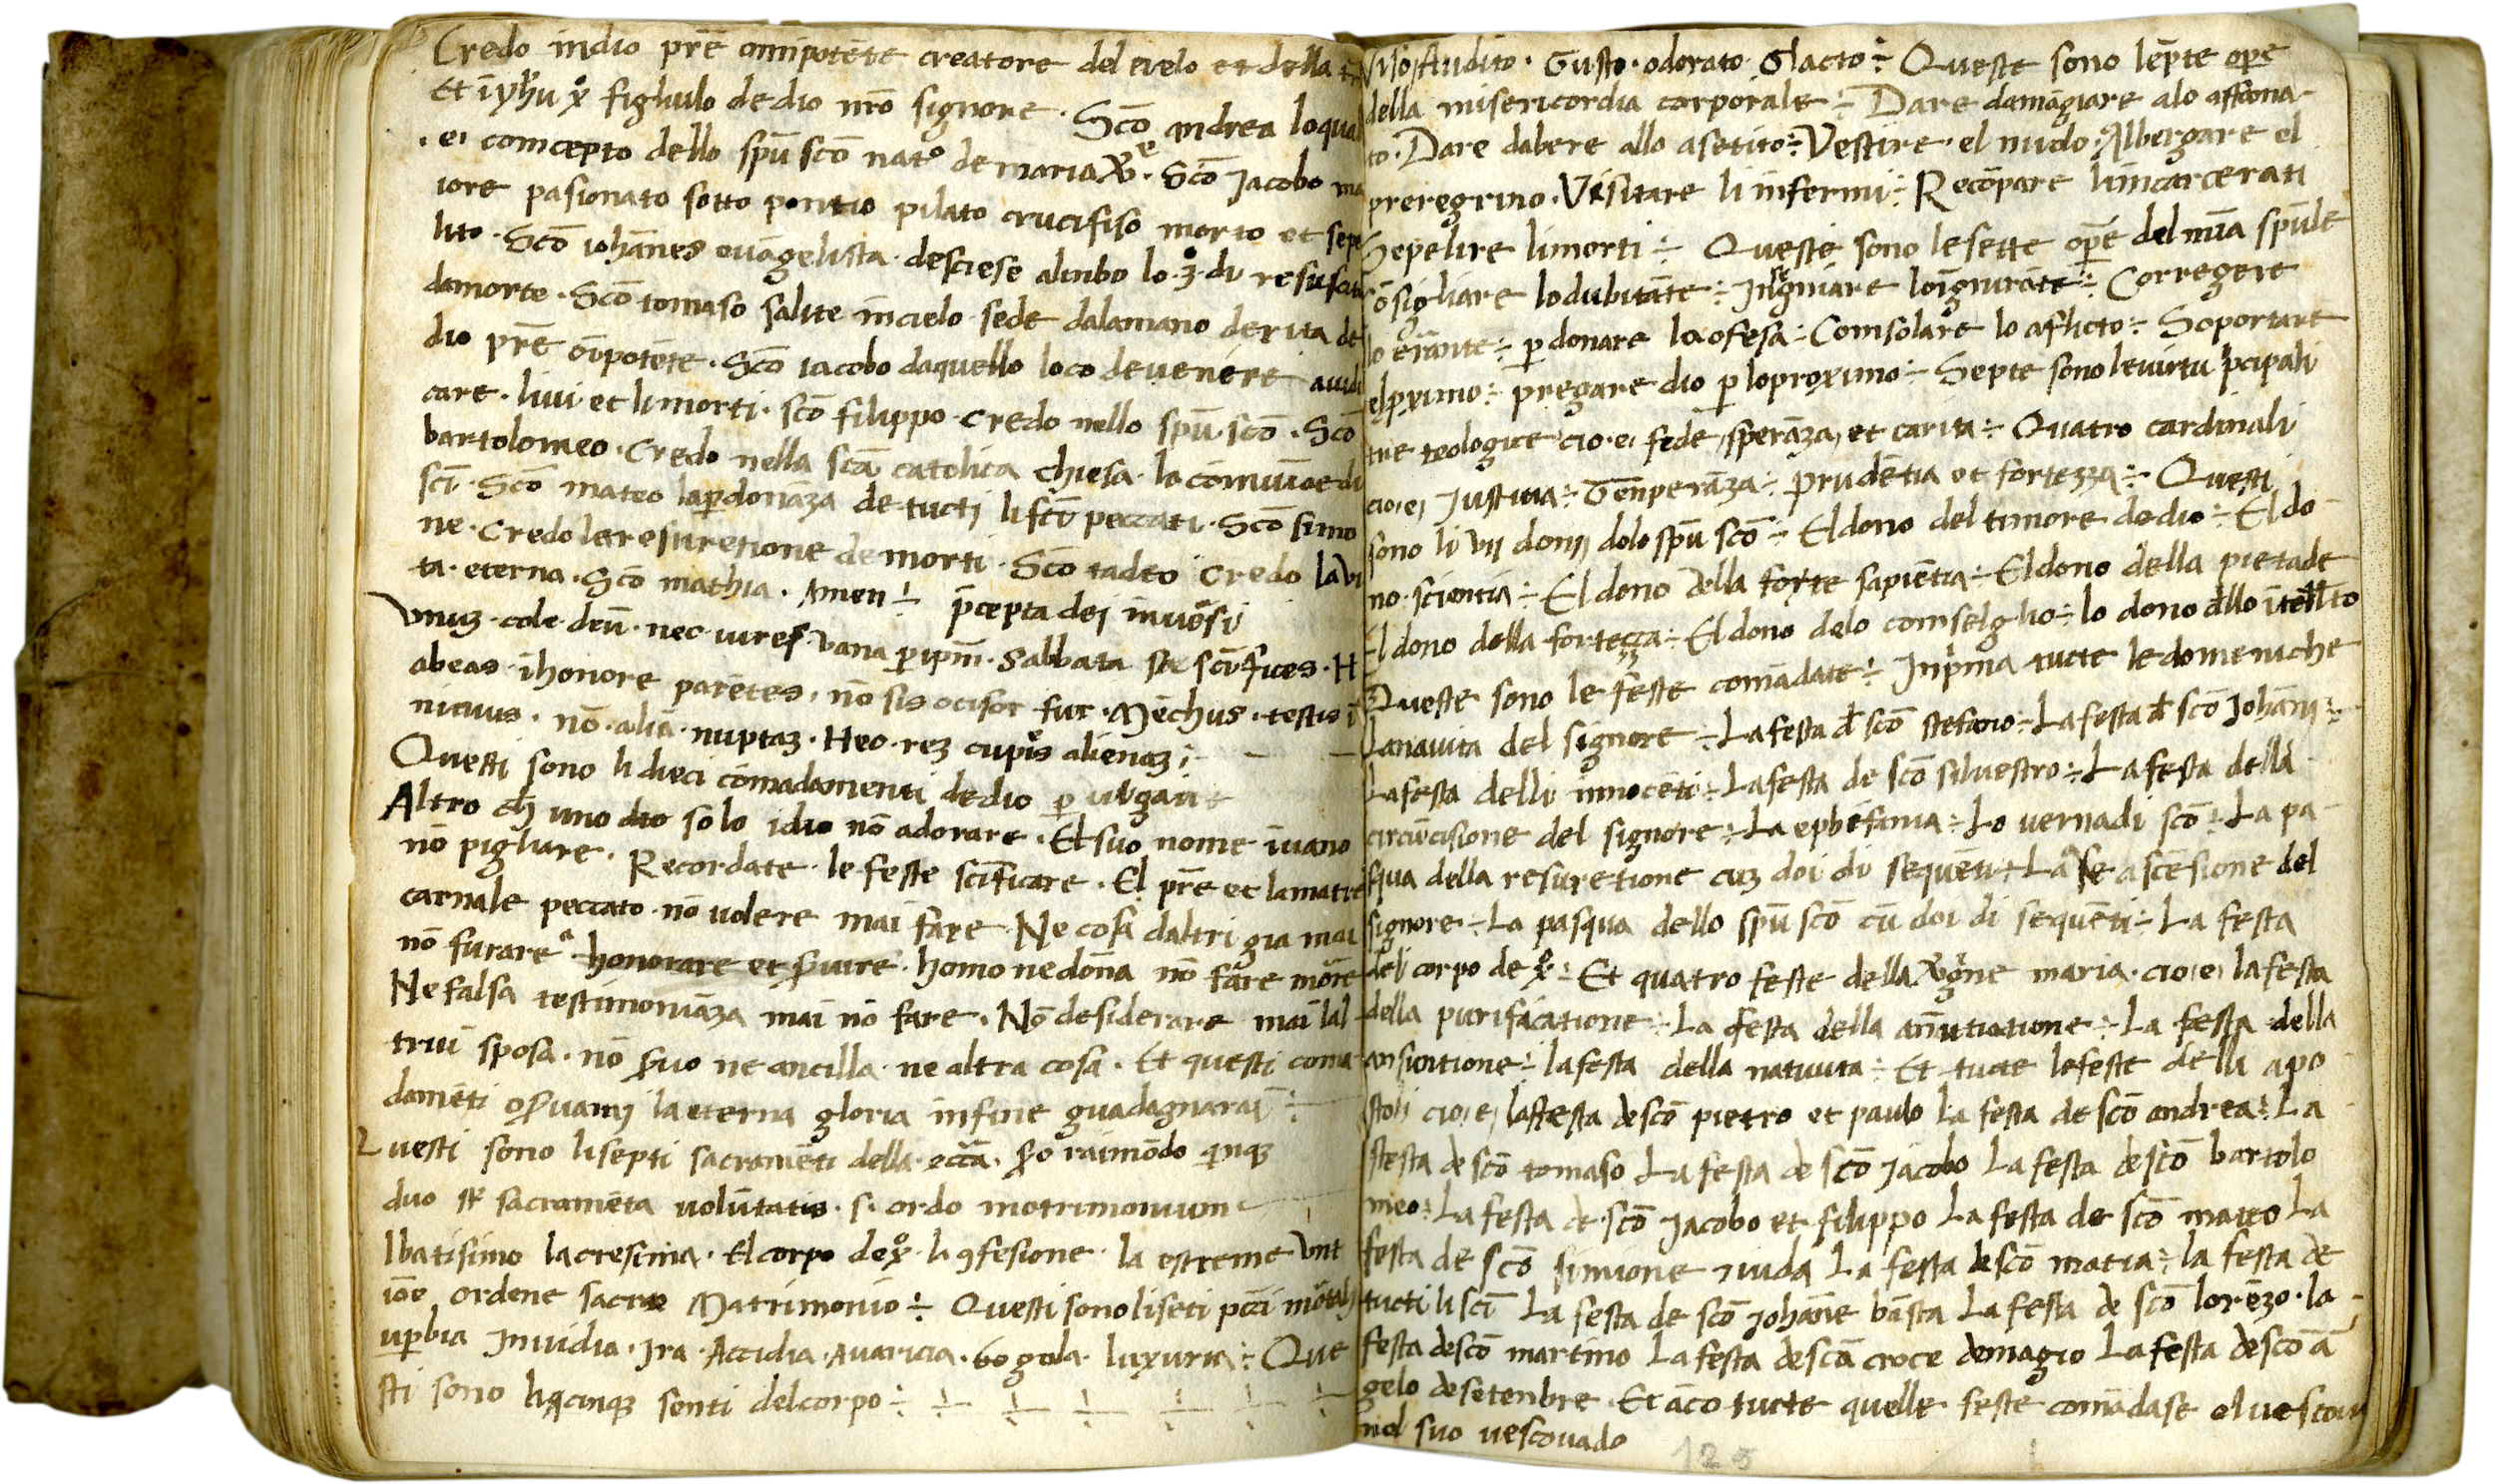 Credo indio prē omnipotēte creatore del cielo et della
Et ī yhu xo figliulo de dio nrō signore · Scō andrea loqual
· e· comcepto dello spū scō nato de maria · Scō Jacobo ma
iore pasionato sotto pontio pilato crucifiso morto et sepe
lito · Scō iohānes euāgelista · desciese alinbo lo · 3 · di resuscita
damorte · Scō tomaso salite incielo sede dalamano derita de
dio prē ōīpotēte · Scō iacobo daquello loco deuenire
care · liui et limorti · scō filippo · credo nello spū · scō · Scō
bartolomeo · Credo nella scā catolica chiesa · la comuniōe di
scī · Scō mateo lap̱donāza de tucti li peccati · Scō simo
ne · credo la resuretione de morti · Scō tadeo credo la vi
ta · eterna · Scō mathia · Amen ÷ p̄cepta dei inuersi
Vnuȝ · cole · deū · nec iures vana p̱ ipm̄ · Sabbata scīfices · H
abeas · īhonore parētes · nō sis ocisor fur · Mēchus · testis
nicuus · nō · aliā · nuptaȝ · Heo · reȝ cupis alienaȝ ;
Questi sono li dieci comādamenti dedio p̱ ulgare
Altro cħ uno dio solo idio nō adorare · El suo nome īuano
nō pigliare · Recordate · le feste scīficare · El prē et lamatre
carnale peccato · nō uolere mai fare · Ne cosa daltri gia mai
nō furare · honorare et seruire · homo ne dōna nō fare
Ne falsa testimoniāza mai nō fare · Nō desiderare mai lal
trui sposa · nō seruo ne ancilla · ne altra cosa · Et questi coma
damēti oseruami la eterna gloria infine guadagnarai ÷
Questi sono li septi sacramēti della · ecc̄a · raimōdo
duo sacramēta volūtatis · s · ordo motrimonium
lbatisimo la cresima · El corpo de xo · la ꝯfesione · la estreme Vnt
iōe ordene sacro Matrimonio ÷ Questi sono li seti pcc̄i mortali
uperbia Inuidia · Ira · Accidia · Auaricia · gola · luxuria ÷ Que
sti sono li cinque senti del corpo ÷ ÷ ÷ ÷ ÷ ÷ ÷
Viso · Audito · Gusto · odorato · ÷ Queste sono lepte ope
della misericordia corporale ÷ Dare damāgiare alo affama-
to · Dare dabere allo asetito ÷ Vestire · el nudo · Albergare el
preregrino · Visitare li infermi ÷ Recōpare līncarcerati
Sepelire limorti ÷ Queste sono lesette opē del spūle
Cōsigliare lodubitāte ÷ Insegniare loignurāte ÷ Corregere
lo erāute ÷ p̱ donare la ofesa ÷ Comsolare lo aflicto ÷ Soportare
elproximo ÷ pregare dio p̱ loproximo ÷ Septe sono leuirtu pcipali
tre teologice cio · e · fede, sperāza, et carita ÷ Quatro cardinali
cio · e · Justicia ÷ Tenperāza ÷ prudētia et fortezza ÷ Questi
sono li vij donij delo spū scō ÷ El dono del timore de dio ÷ El do
no · scientia ÷ El dono della forte sapiētia ÷ El dono della pietade
El dono della fortezza ÷ El dono delo comselglio ÷ lo dono dello
Queste sono le feste comādate ÷ Inprima tucte ledomeniche
Lanatiuita del signore ÷ La festa đ scō stefano ÷ La festa đ scō Johāni ÷
La festa delli innocēti ÷ La festa de scō siluestro ÷ La festa della
circūcisione del signore ÷ La ephifania ÷ Lo uernadi scō ÷ La pa
squa della resuretione cuȝ doi di sequēti ÷ La ascēsione del
signore ÷ La pasqua dello spū scō cū doi di sequēti ÷ La festa
del corpo de xo ÷ Et quatro feste della maria · cio · e · la festa
della purificatione ÷ La festa della añutiatione ÷ La festa della
ansuntione ÷ la festa della natiuita ÷ Et tucte le feste delli apo
stoli cio · e · la festa de scō pietro et paulo La festa de scō andrea ÷ La
festa de scō tomaso La festa de scō Jacobo La festa de scō bartolo
meo ÷ La festa de · scō Jacobo et filippo La festa de scō mateo La
festa de scō simione iuda La festa de scō matia ÷ la festa de
tucti li scī La festa de scō Johāne bāsta La festa de scō lorēzo · la
festa de scō martino La festa de scā croce demagio La festa de scō ā
gelo de setenbre · Et āco tucte quelle feste comādase el uescouo
nel suo uescouado
125